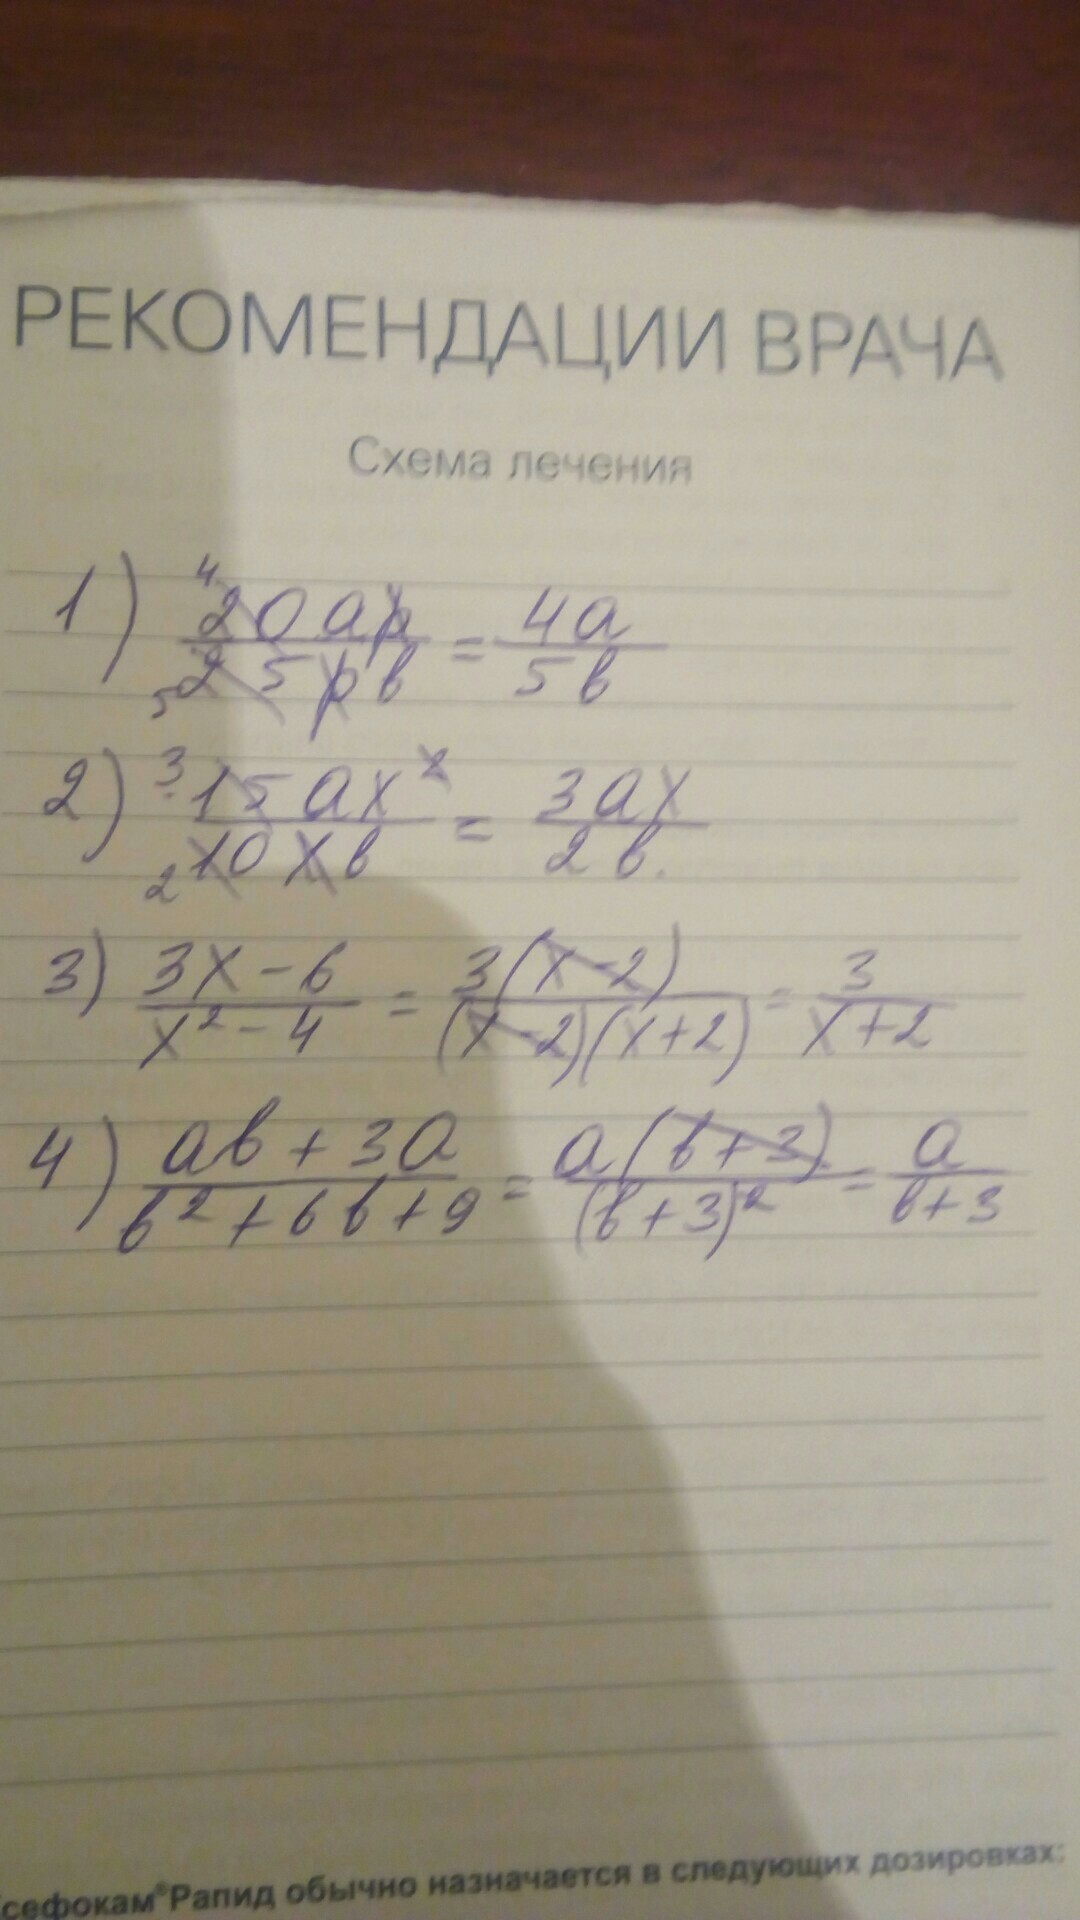 РЕКОМЕНДАЦИИ ВРАЧА
Схема лечения
1) ⁴20ap / ₅25pв = 4a / 5в
2) ³15ax² / ₂10xв = 3ax / 2в.
3) 3x-6 / x²-4 = 3(x-2) / (x-2)(x+2) = 3 / x+2
4) aв+3a / в²+6в+9 = a(в+3) / (в+3)² = a / в+3
сефокам®Рапид обычно назначается в следующих дозировках: